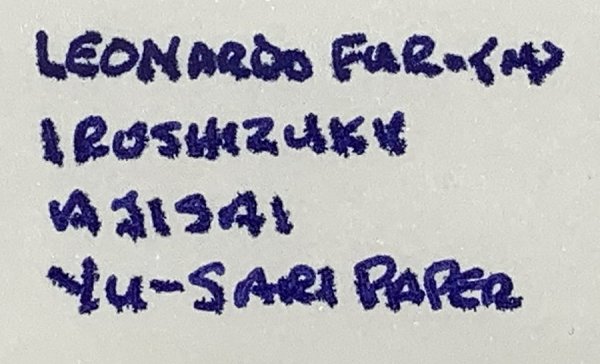 LEONARDO FUR-(M)
IROSHIZUKU
AJISAI
YU-SARI PAPER